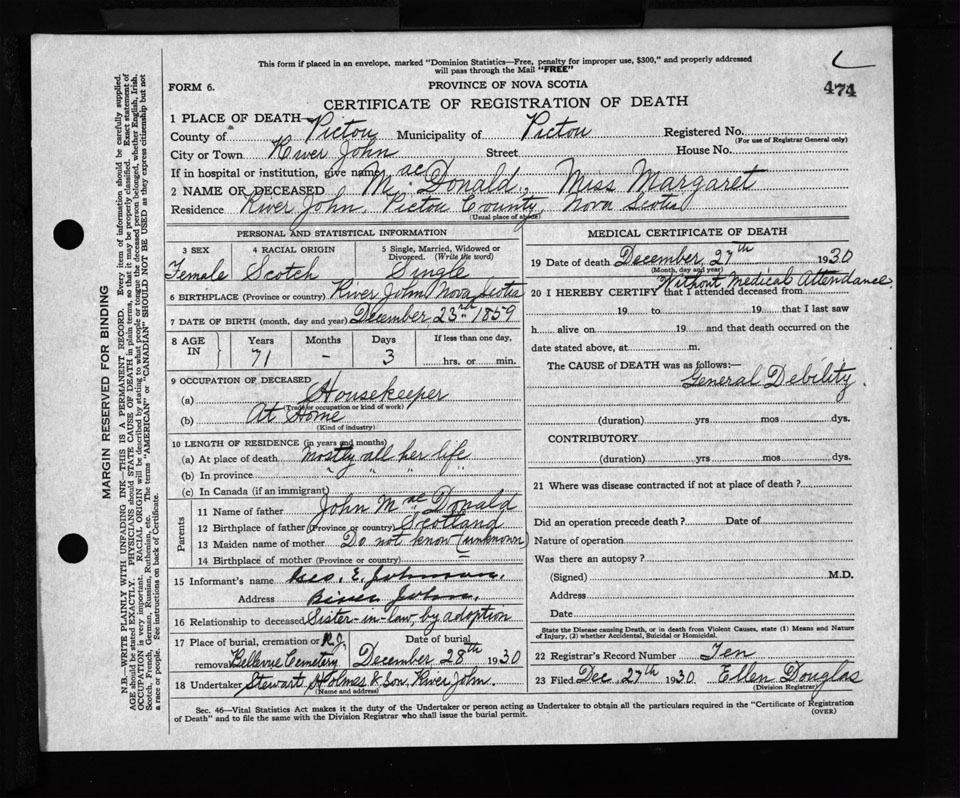 This form if placed in an envelope, marked "Dominion Statistics—Free, penalty for improper use, $300," and properly addressed
will pass through the Mail "FREE"
FORM 6.
PROVINCE OF NOVA SCOTIA
474
CERTIFICATE OF REGISTRATION OF DEATH
1 PLACE OF DEATH—
County of Pictou Municipality of Pictou Registered No.
(For use of Registrar General only)
City or Town River John Street House No.
If in hospital or institution, give name
2 NAME OF DECEASED Mac Donald, Miss Margaret
Residence River John, Pictou County, Nova Scotia
(Usual place of abode)
PERSONAL AND STATISTICAL INFORMATION
3 SEX 4 RACIAL ORIGIN 5 Single, Married, Widowed or Divorced. (Write the word)
Female Scotch Single
6 BIRTHPLACE (Province or country) River John Nova Scotia
7 DATE OF BIRTH (month, day and year) December 23rd 1859
8 AGE IN Years Months Days If less than one day,
71 - 3 hrs. or min.
9 OCCUPATION OF DECEASED
(a) Housekeeper
(Trade or occupation or kind of work)
(b) At Home
(Kind of industry)
10 LENGTH OF RESIDENCE (in years and months)
(a) At place of death Mostly all her life
(b) In province " " " "
(c) In Canada (if an immigrant)
Parents
11 Name of father John Mac Donald
12 Birthplace of father (Province or country) Scotland
13 Maiden name of mother Do not know (unknown)
14 Birthplace of mother (Province or country)
15 Informant's name Geo. E. Johnson.
Address River John.
16 Relationship to deceased Sister-in-law, by adoption
17 Place of burial, cremation or R.J. Date of burial
removal Bellevue Cemetery December 28th 1930
18 Undertaker Stewart Holmes & Son, River John.
(Name and address)
MEDICAL CERTIFICATE OF DEATH
19 Date of death December 27th 1930
(Month, day and year)
Without Medical Attendance,
20 I HEREBY CERTIFY that I attended deceased from
19 to 19 that I last saw
h alive on 19 and that death occurred on the
date stated above, at m.
The CAUSE of DEATH was as follows:—
General Debility.
(duration) yrs mos dys.
CONTRIBUTORY
(duration) yrs mos dys.
21 Where was disease contracted if not at place of death?
Did an operation precede death? Date of
Nature of operation
Was there an autopsy?
(Signed) M.D.
Address
Date
State the Disease causing Death, or in death from Violent Causes, state (1) Means and Nature
of Injury, (2) whether Accidental, Suicidal or Homicidal.
22 Registrar's Record Number Ten
23 Filed Dec. 27th 1930 Ellen Douglas
(Division Registrar)
Sec. 46—Vital Statistics Act makes it the duty of the Undertaker or person acting as Undertaker to obtain all the particulars required in the "Certificate of Registration
of Death" and to file the same with the Division Registrar who shall issue the burial permit.
(OVER)
MARGIN RESERVED FOR BINDING
N.B.—WRITE PLAINLY WITH UNFADING INK—THIS IS A PERMANENT RECORD. Every item of information should be carefully supplied.
AGE should be stated EXACTLY. PHYSICIANS should STATE CAUSE OF DEATH in plain terms, so that it may be properly classified. Exact statement of
OCCUPATION is very important. RACIAL ORIGIN will be described by stating to what people or tongue the deceased person belonged, whether English, Irish,
Scotch, French, German, Russian, Ruthenian, etc. The terms "AMERICAN" or "CANADIAN" SHOULD NOT BE USED as they express citizenship but not
a race or people. See instructions on back of Certificate.